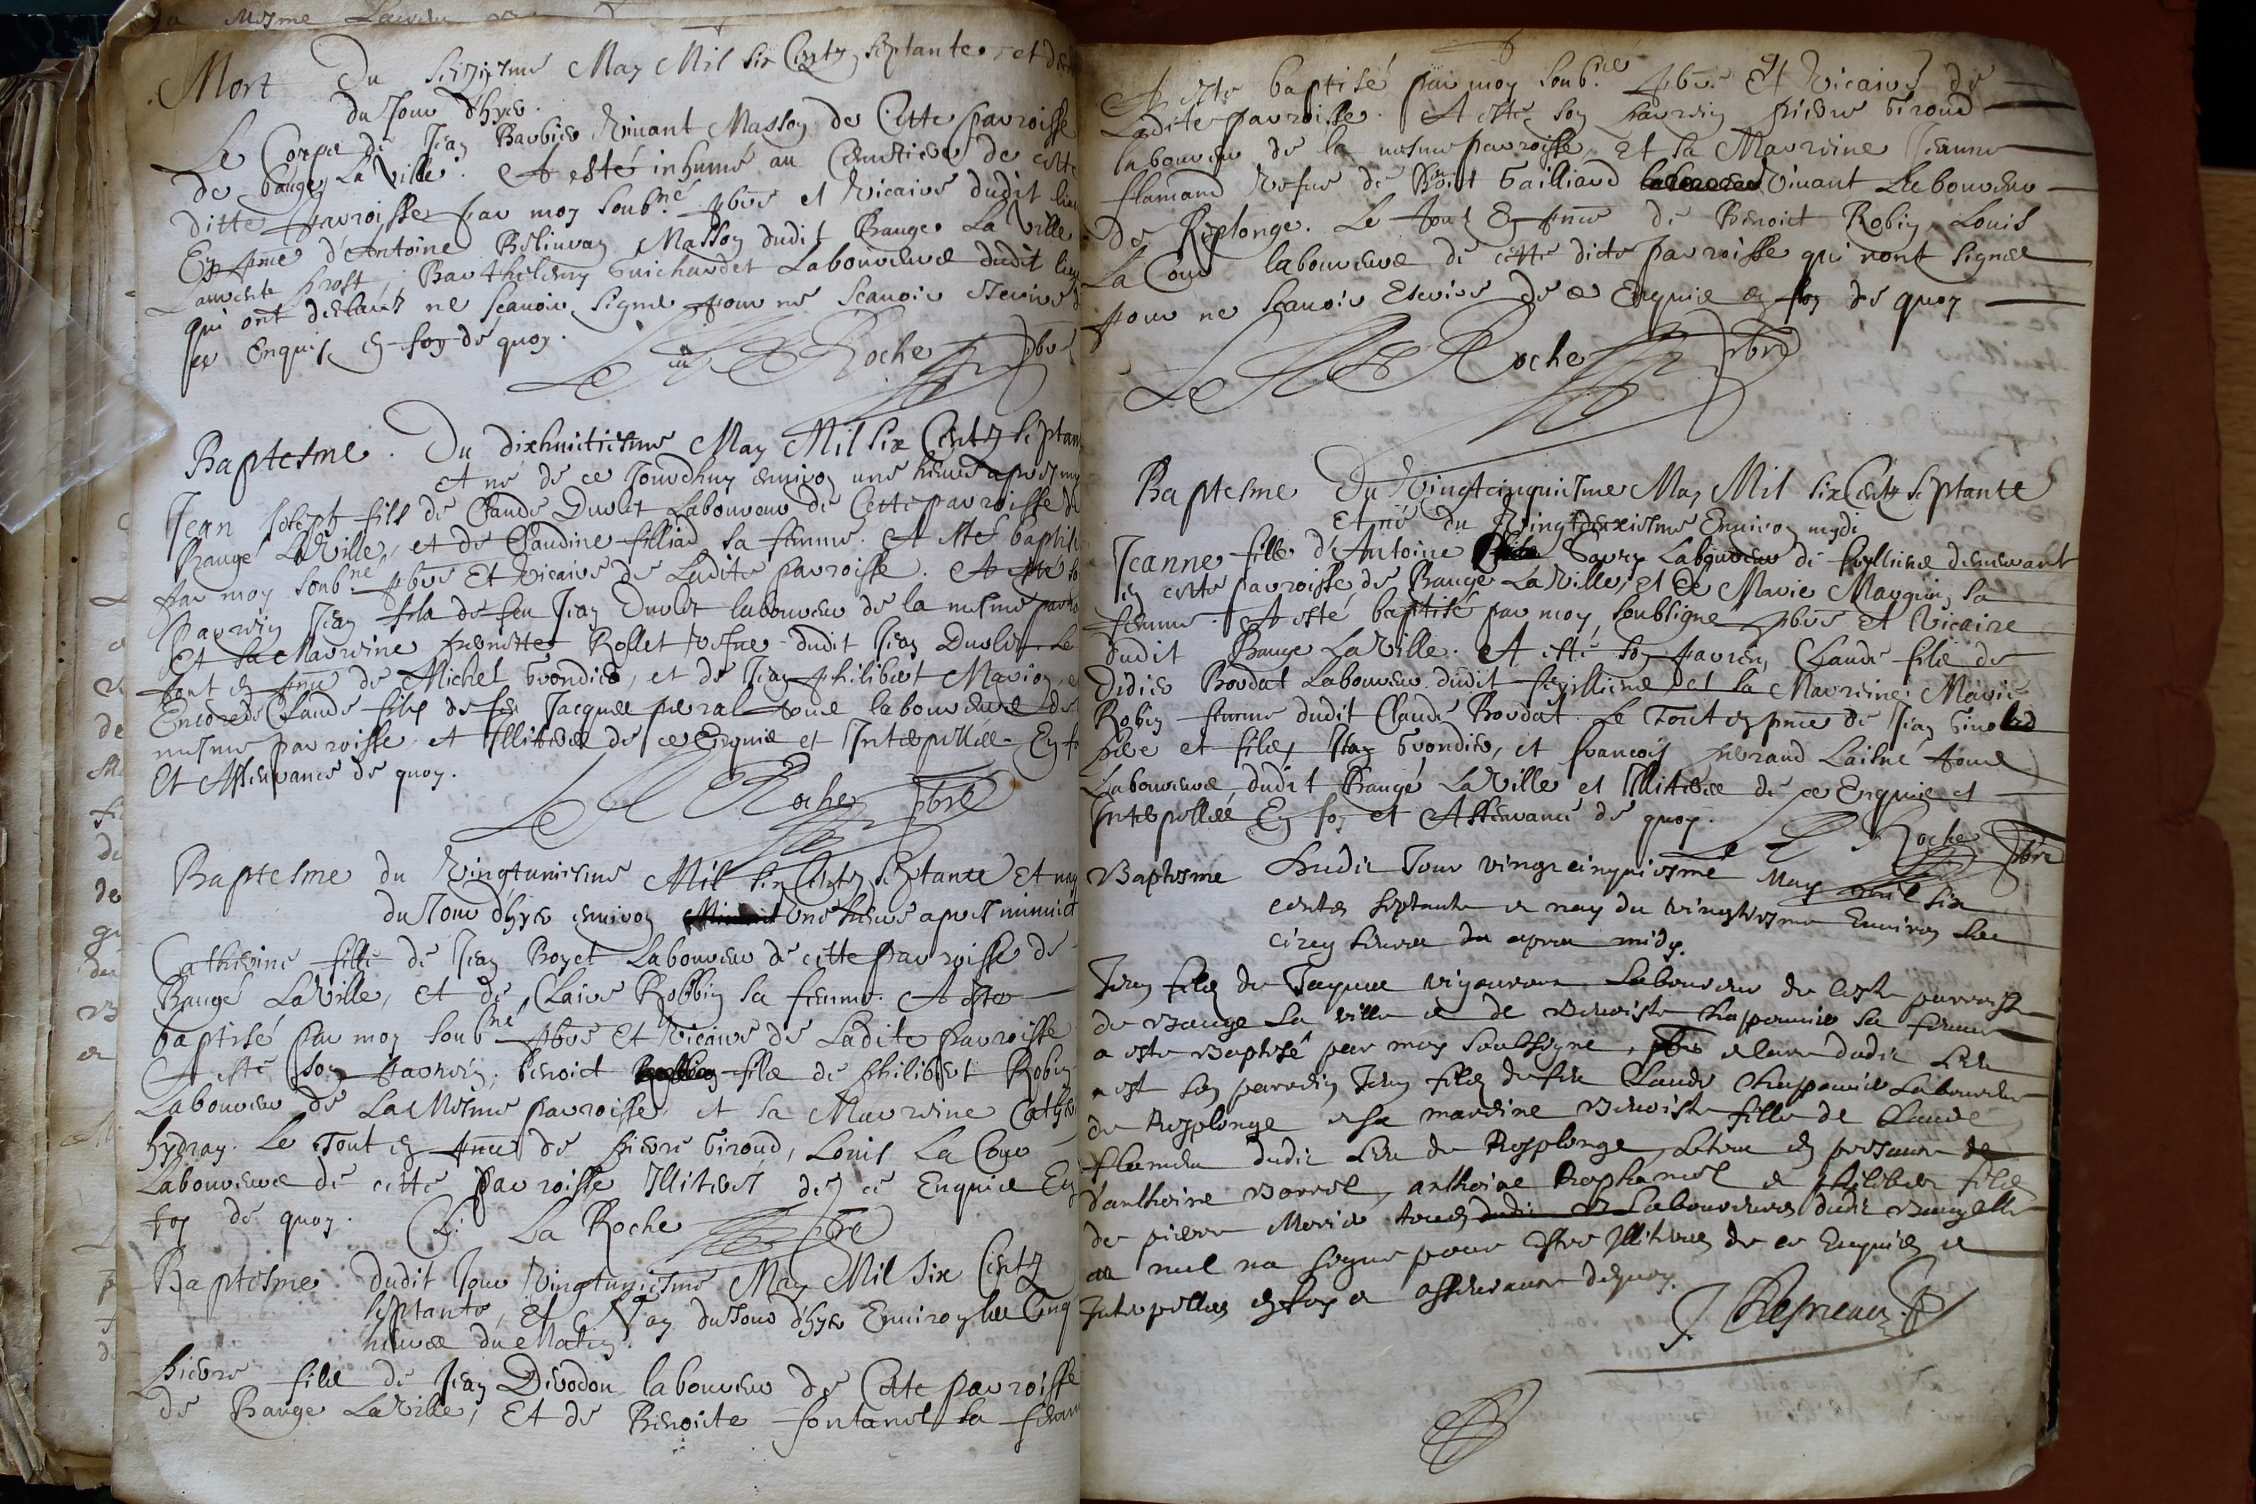 Mort Du seiziesme May Mil six Centz septante et
du Jour d'hyer.
Le Corps de Jean Barbier Vivant Masson de Cette parroisse
de bauge La Ville. A esté inhumé au Cemetiere de cette
ditte parroisse par moy soubné. pbre et Vicaire dudit lieu
En pnce d'Antoine Masson dudit Bauge La Ville
Barthelemy Guichardet Laboureurs dudit lieu
qui ont declarés ne scauoir signe pour ne scauoir Escrire
Enquis, en foy de quoy.
La Roche pbre
Baptesme. Du dixhuictiesme May Mil six Centz septan
et né de ce Jourdhuy enuiron une heure apres my
Jean Joseph fils de Claude Duolet Laboureur de Cette parroisse de
Baugé La Ville, et de Claudine filliard sa femme. A esté baptisé
par moy soubné pbre Et Vicaire de Ladite parroisse. A esté so
Parrein Jean fils de feu Jean Duolet laboureur de la mesme parro
Et sa Marreine Rollet vefue dudit Jean Duolet. Le
tout en pnce de Michel Grondier, et de Jean philibert Marion, et
Encores Claude filz de feu Jacques tous laboureurs de
mesme parroisse, et Illiteres de ce Enquis et Interpelles. En fo
Et Asseurance de quoy.
La Roche pbre
Baptesme du Vingtuniesme Mil six Centz septante Et nay
du Jour d'hyer enuiron une heure apres minuict
Catherine fille de Jean Boyet Laboureur de cette parroisse de
Baugé LaVille, et de Claire Robbin sa femme. A este
baptisé par moy soubné pbre Et Vicaire de Ladite parroisse
A esté son parrein, benoict fils de philibert Robin
Laboureur de La Mesme parroisse, et sa Marreine Cathe
hydray. Le Tout en pnce de pierre Giroud, Louis La Cour
Laboureurs de cette parroisse Illiterés de ce Enquis En
foy de quoy. La Roche pbre
Baptesme dudit Jour Vingtuniesme May Mil six Centz
septante, et Nay du Jour d'hyer Enuiron les Cinq
heures du Matin.
pierre fils de Jean Diuodon laboureur de Cette parroisse
de Bauge La Ville, Et de Benoicte fontanel sa femm
A este baptisé par moy soubné. pbre Et Vicaire de
Ladite parroisse. A esté son parrein pierre Giroud
laboureur de la mesme parroisse, et sa Marreine Jeanne
flamand vefue de Gailliard Viuant Laboureur
de Replonge. Le tout En pnce de Benoict Robin, Louis
La Cour laboureurs de cette dicte parroisse qui n'ont signes
pour ne scauoir Escrire de ce Enquis en foy de quoy
La Roche pbre
Baptesme Du Vingtcinquiesme May Mil six Centz septante
Et né du Vingtdeuxiesme Enuiron mydi
Jeanne fille d'Antoine Gaury Laboureur de demeurant
En cette parroisse de Baugé La Ville, et de Marie Maugin, sa
femme. A esté baptisé par moy soubsigne pbre et Vicaire
dudit Bauge La Ville. A esté son parrein Claude fils de
Didier Bordat Laboureur dudit et la Marreine Marie
Robin femme dudit Claude Bordat. Le Tout en pnce de Jean
pere et fils, Jean Grondier, et francois Laisné tous
Laboureurs dudit Baugé La Ville et Illiteres de ce Enquis et
Interpellés En foy et Asseurance de quoy.
La Roche pbre
Baptesme Dudit Jour vingt cinquiesme May mil six
cents septante et nay du vingt Enuiron les
cinq heures du apres midy
Jean filz de Jaques vigoureux Laboureur de Ceste parroisse
de Bauge La ville et de Benoiste Chaponnier sa femme
a este Baptisé par moy Soubsigné, pbre dudit Lieu
a est son parrein Jean filz de feu Claude Chaponier Laboureur
de Replonge et sa mareine Benoiste fille de Claude
flamen dudit Lieu de Replonge, Letout en presance de
d'anthoine Borrel, anthoine Raphanel et philiber filz
de pierre Morier tous Laboureurs dudit
nul na signe pour estre Illiterés de ce Enquis et
Interpellés en foy et asseurance dequoy.